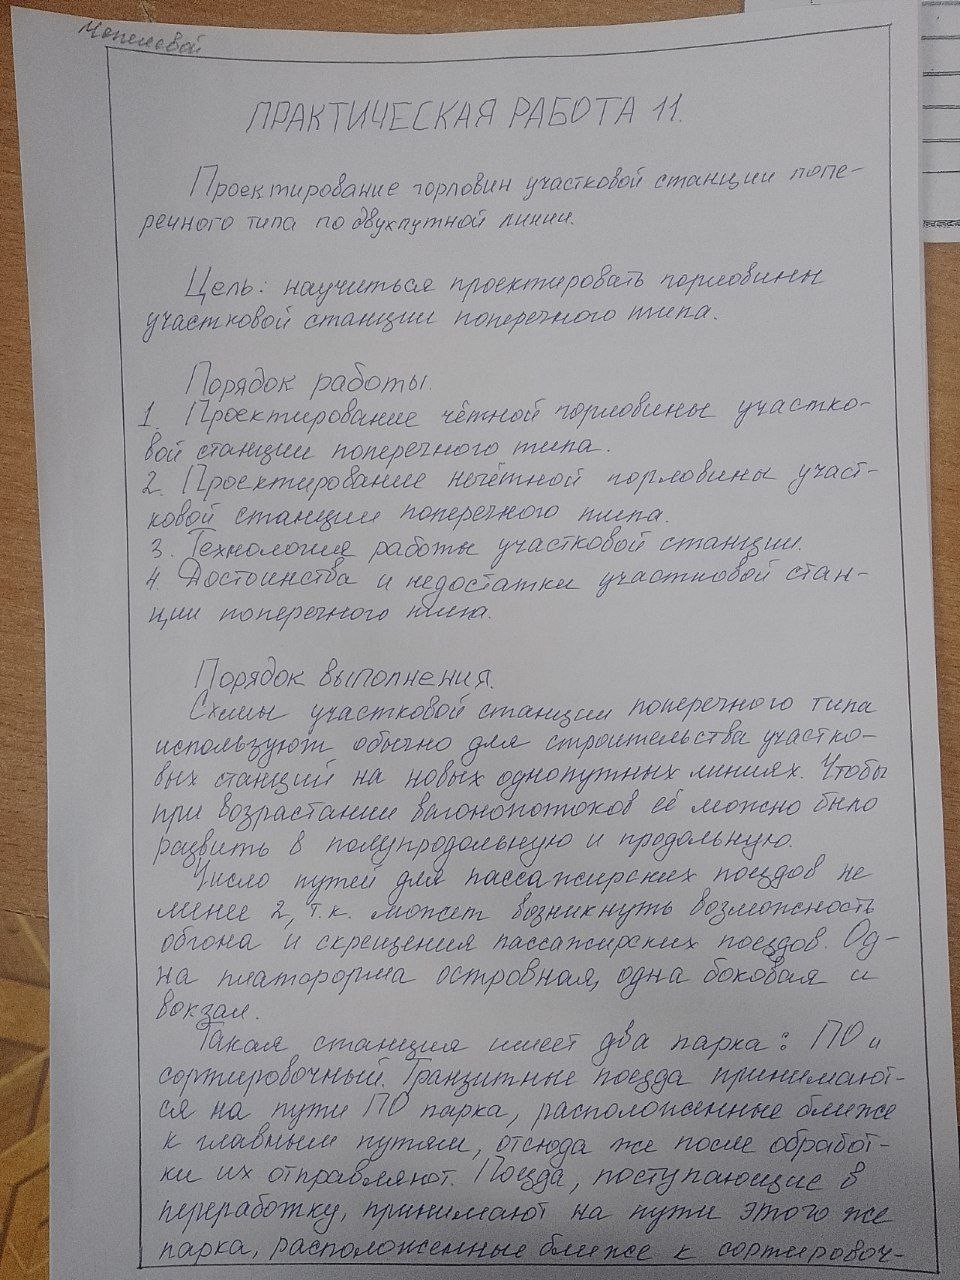 ПРАКТИЧЕСКАЯ РАБОТА 11.
Проектирование горловин участковой станции попе-
речного типа по двухпутной линии.
Цель: научиться проектировать горловины
участковой станции поперечного типа.
Порядок работы.
1. Проектирование чётной горловины участко-
вой станции поперечного типа.
2. Проектирование нечётной горловины участ-
ковой станции поперечного типа.
3. Технология работы участковой станции.
4. Достоинства и недостатки участковой стан-
ции поперечного типа.
Порядок выполнения.
Схемы участковой станции поперечного типа
используют обычно для строительства участко-
вых станций на новых однопутных линиях. Чтобы
при возрастании вагонопотоков её можно было
развить в полупродольную и продольную.
Число путей для пассажирских поездов не
менее 2, т.к. может возникнуть возможность
обгона и скрещения пассажирских поездов. Од-
на платформа островная, одна боковая и
вокзал.
Такая станция имеет два парка: ПО и
сортировочный. Транзитные поезда принимают-
ся на пути ПО парка, расположенные ближе
к главным путям, отсюда же после обработ-
ки их отправляют. Поезда, поступающие в
переработку, принимают на пути этого же
парка, расположенные ближе к сортировоч-